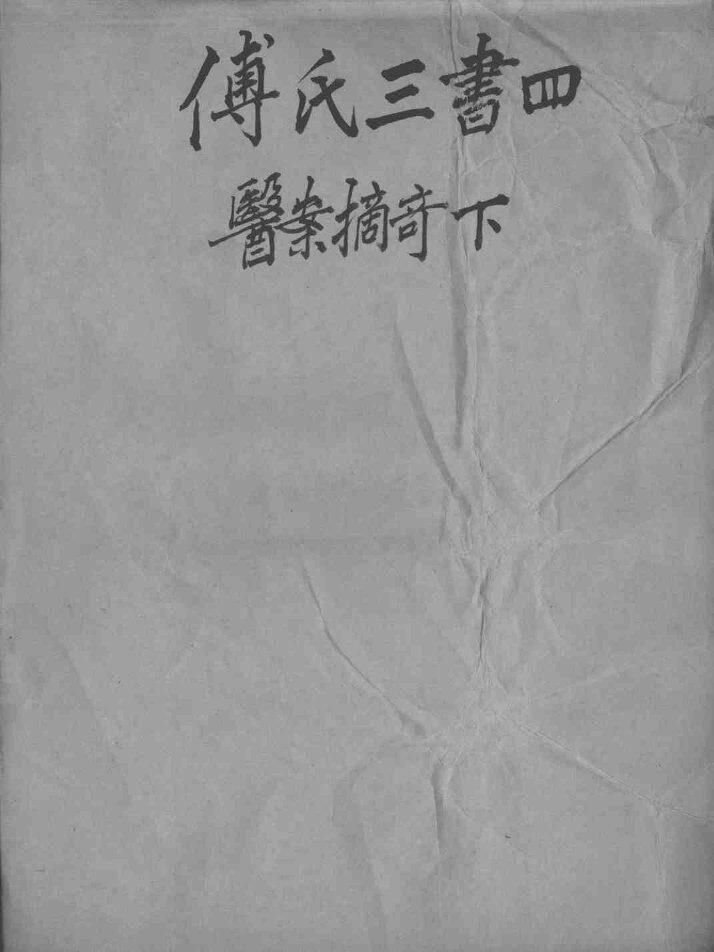 傅氏三書四
醫案摘奇下